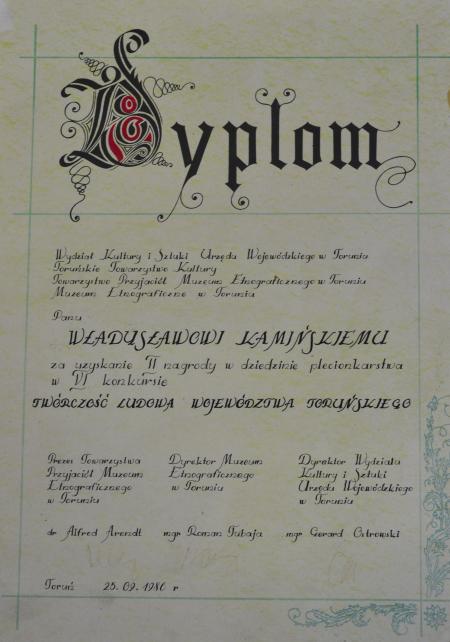 Dyplom
Wydział Kultury i Sztuki Urzędu Wojewódzkiego w Toruniu
Toruńskie Towarzystwo Kultury
Towarzystwo Przyjaciół Muzeum Etnograficznego w Toruniu
Muzeum Etnograficzne w Toruniu
Panu
WŁADYSŁAWOWI KAMIŃSKIEMU
za uzyskanie II nagrody w dziedzinie plecionkarstwa
w VI konkursie
TWÓRCZOŚĆ LUDOWA WOJEWÓDZTWA TORUŃSKIEGO
Prezes Towarzystwa
Przyjaciół Muzeum
Etnograficznego
w Toruniu
dr Alfred Arendt
Dyrektor Muzeum
Etnograficznego
w Toruniu
mgr Roman Tubaja
Dyrektor Wydziału
Kultury i Sztuki
Urzędu Wojewódzkiego
w Toruniu
mgr Gerard Ostrowski
Toruń 25.09.1986 r